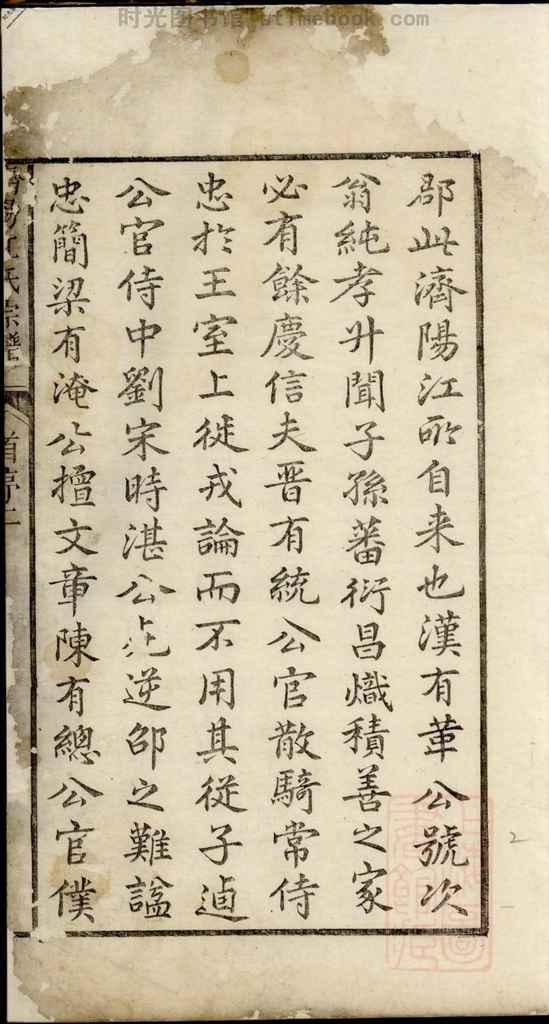 时光图书馆@atimebook.com
郡此濟陽江所自来也漢有革公號次
翁純孝升聞子孫蕃衍昌熾積善之家
必有餘慶信夫晋有統公官散騎常侍
忠於王室上徙戎論而不用其從子逌
公官侍中劉宋時湛公死逆邵之難諡
忠簡梁有淹公擅文章陳有總公官僕
陽江氏宗譜 首序
2